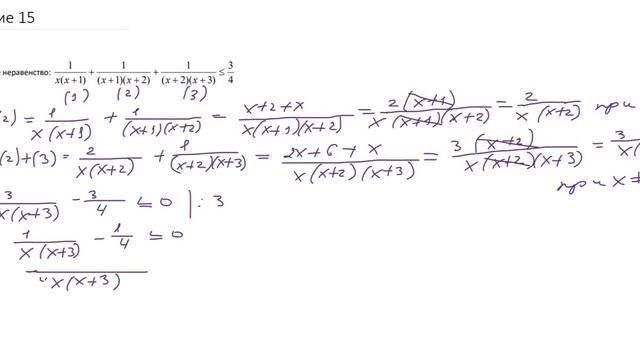 ие 15
е неравенство: 1/(x(x+1)) + 1/((x+1)(x+2)) + 1/((x+2)(x+3)) ≤ 3/4
(1) (2) (3)
2) = 1/(x(x+1)) + 1/((x+1)(x+2)) = (x+2+x)/(x(x+1)(x+2)) = 2(x+1)/(x(x+1)(x+2)) = 2/(x(x+2)) при
(2)+(3) = 2/(x(x+2)) + 1/((x+2)(x+3)) = (2x+6+x)/(x(x+2)(x+3)) = 3(x+2)/(x(x+2)(x+3)) = 3/x(
при x≠
3/(x(x+3)) - 3/4 ≤ 0 |: 3
1/(x(x+3)) - 1/4 ≤ 0
4x(x+3)